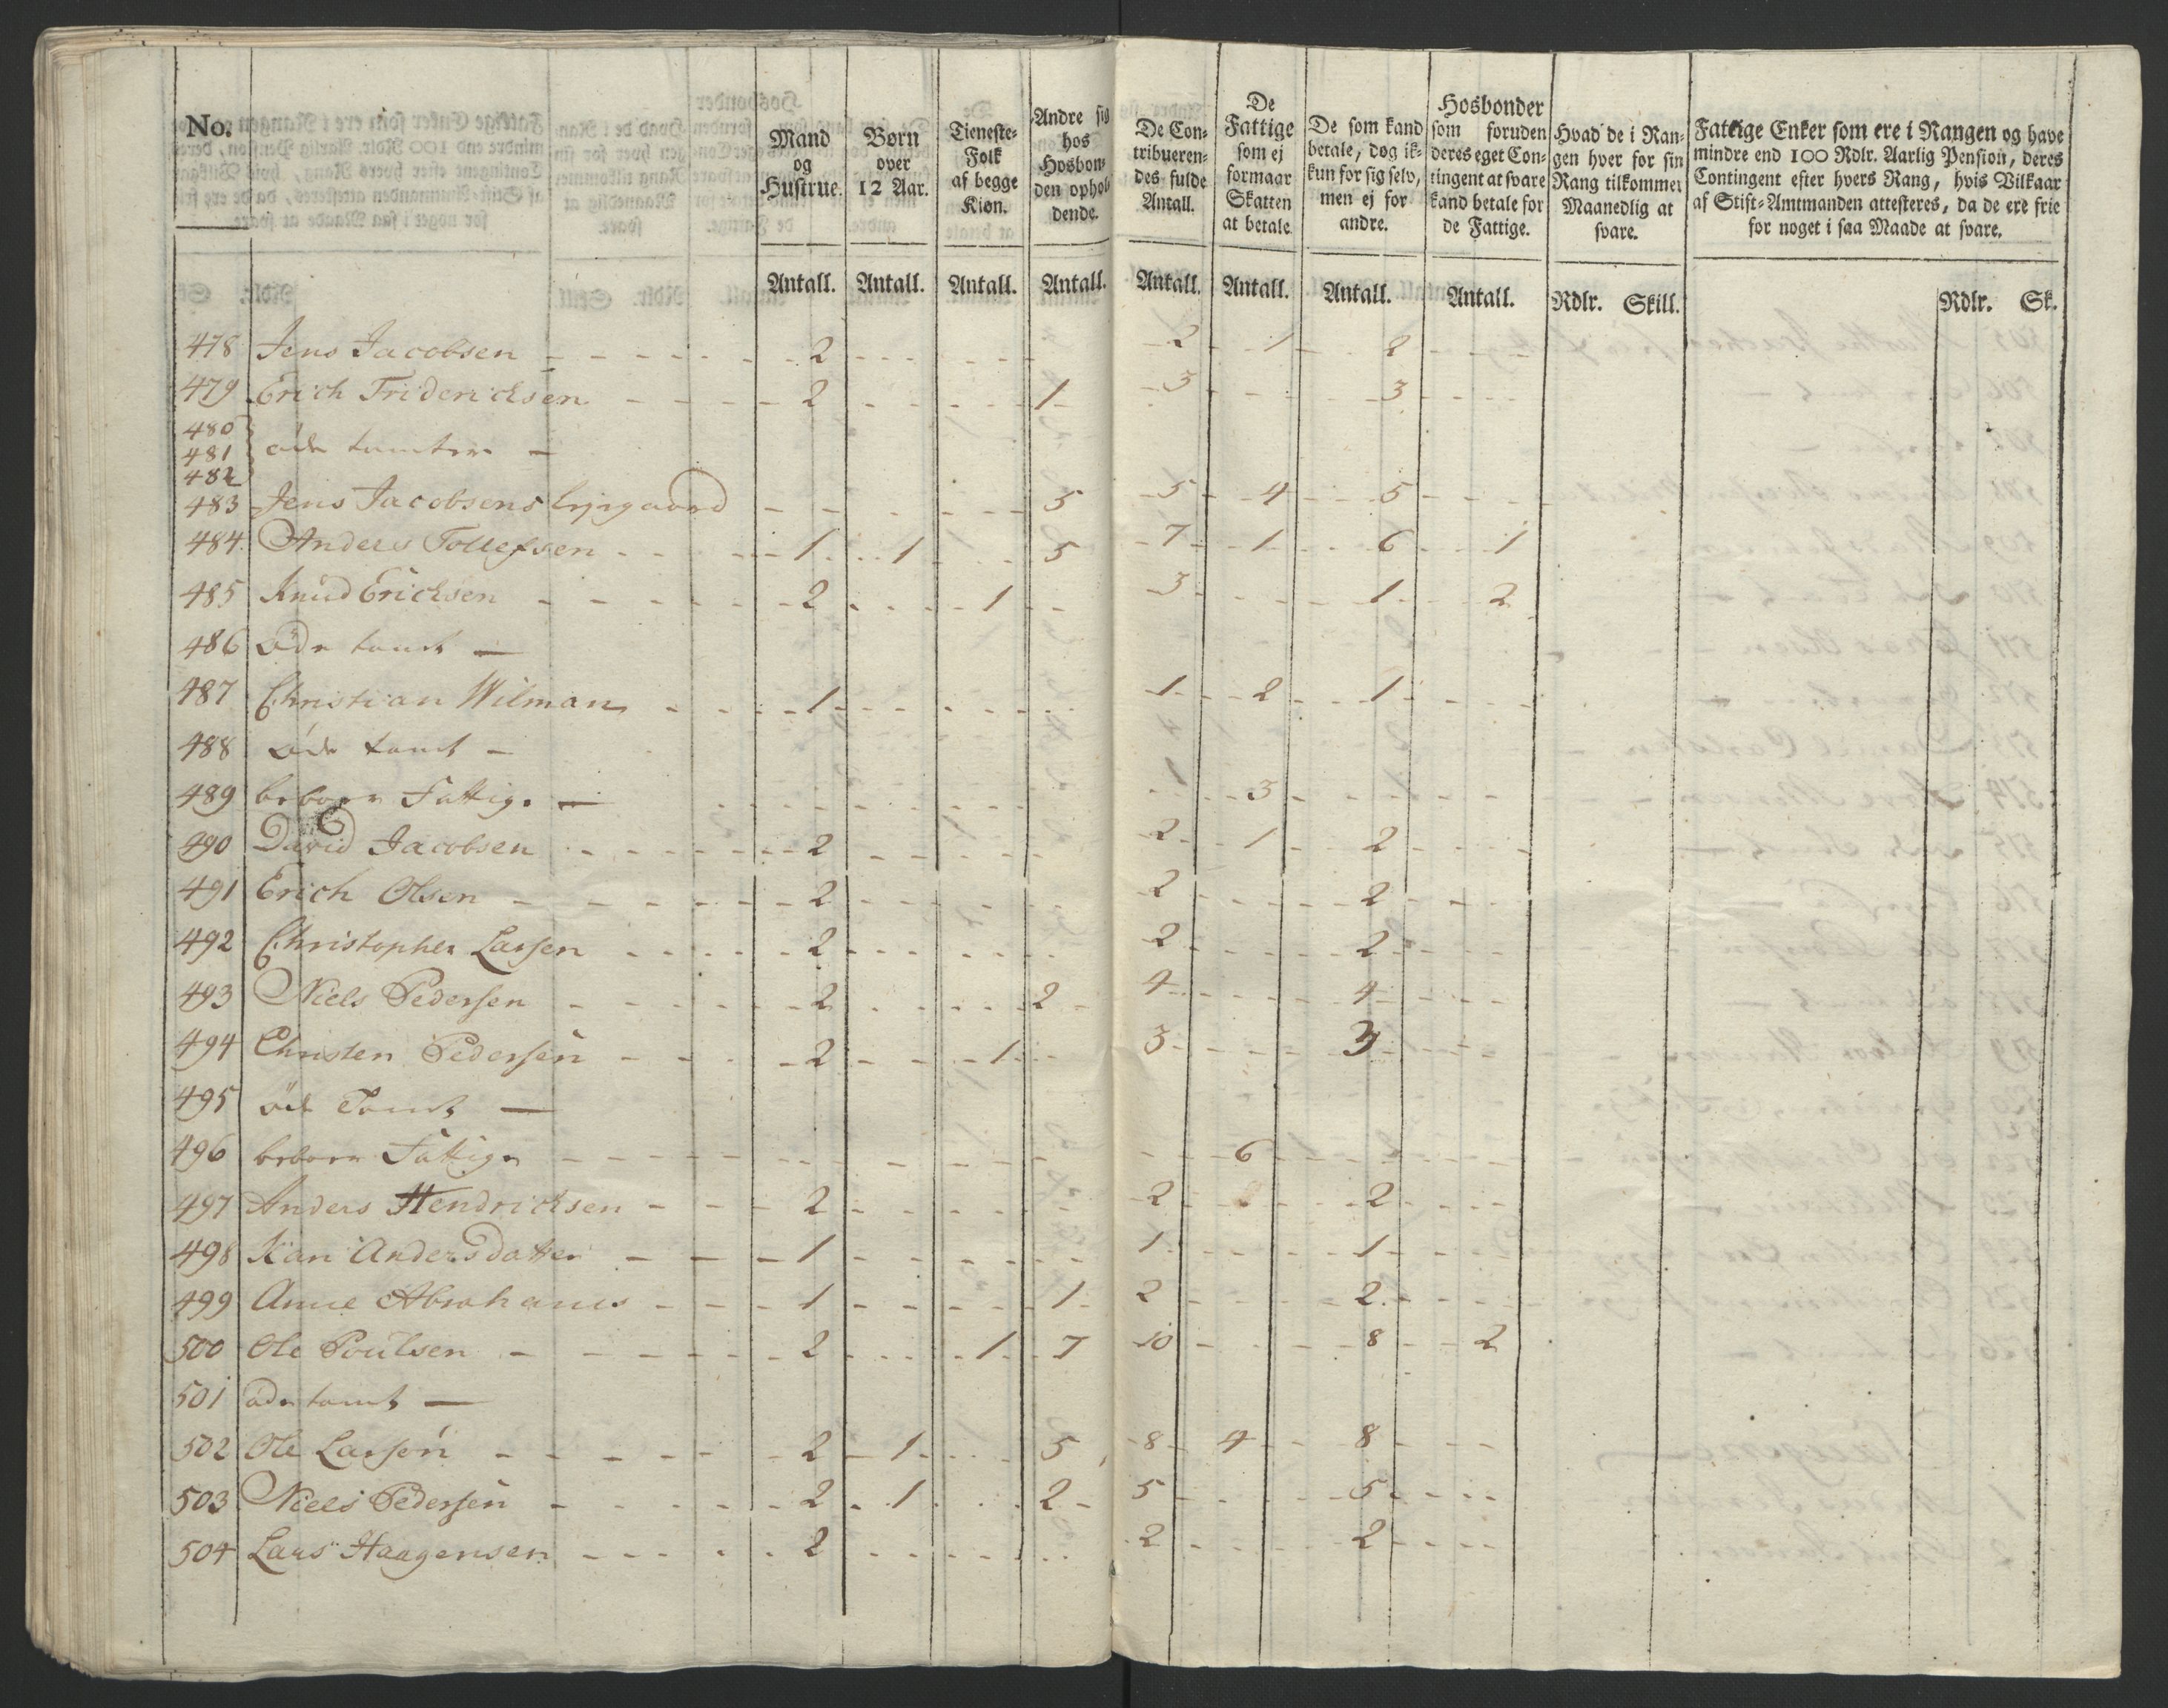 No. | Mand og Hustrue. | Børn over 12 Aar. | Tieneste-Folk af begge Kiøn. | Andre sig hos Hosbon-den ophol-dende. | De Con-tribueren-des fulde Antall. | De Fattige som ej formaar Skatten at betale. | De som kand betale, dog ik-kun for sig selv, men ej for andre. | Hosbonder som foruden deres eget Con-tingent at svare kand betale for de Fattige. | Hvad de i Ran-gen hver for sin Rang tilkommer Maanedlig at svare. | Fattige Enker som ere i Rangen og have mindre end 100 Rdlr. Aarlig Pension, deres Contingent efter hvers Rang, hvis Vilkaar af Stift-Amtmanden attesteres, da de ere frie for noget i saa Maade at svare.
Antall. | Antall. | Antall. | Antall. | Antall. | Antall. | Antall. | Antall. | Rdlr. Skill. | Rdlr. Sk.
478 Jens Jacobsen - 2 - 2 - 1 - 2
479 Erich Friderichsen - 2 - 1 - 3 - 3
480
481 öde tomter -
482
483 Jens Jacobsens - 5 - 5 - 4 - 5
484. Anders Tollefsen - 1 - 1 - 5 - 7 - 1 - 6 - 1
485 Knud Erichsen - 2 - 1 - 3 - 1 - 2
486 öde tomt -
487 Christian Wilman - 1 - 1 - 2 - 1
488 öde tomt -
489 beboer Fattige - 3
490 David Jacobsen - 2 - 2 - 1 - 2
491 Erich Olsen - 2 - 2 - 2
492 Christopher Larsen - 2 - 2 - 2
493 Niels Pedersen - 2 - 2 - 4 - 4
494 Christen Pedersen - 2 - 1 - 3 - 3
495 öde Tomt -
496 beboer Fattige - 6
497 Anders Hendrichsen - 2 - 2 - 2
498 Kari Andersdatter - 1 - 1 - 1
499 Anne Abrahams - 1 - 1 - 2 - 2
500 Ole Poulsen - 2 - 1 - 7 - 10 - 8 - 2
501 öde tomt -
502 Ole Larsen - 2 - 1 - 5 - 8 - 4 - 8
503 Niels Pedersen - 2 - 1 - 2 - 5 - 5
504 Lars Haagensen - 2 - 2 - 2